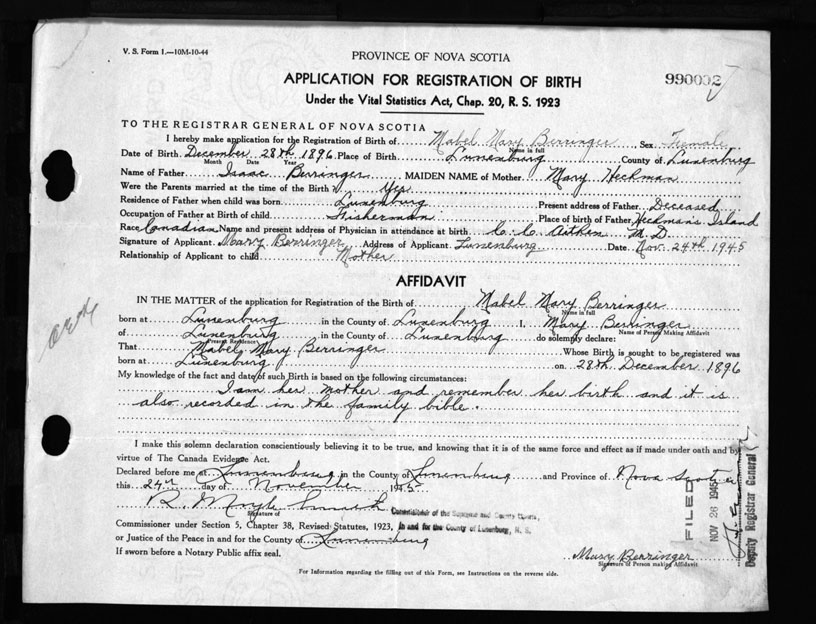 V. S. Form 1.—10M-10-44
PROVINCE OF NOVA SCOTIA
APPLICATION FOR REGISTRATION OF BIRTH
990002
Under the Vital Statistics Act, Chap. 20, R. S. 1923
TO THE REGISTRAR GENERAL OF NOVA SCOTIA
I hereby make application for the Registration of Birth of Mabel Mary Berringer Sex Female
Name in full
Date of Birth December 28th 1896 Place of Birth Lunenburg County of Lunenburg
Month Date Year
Name of Father Isaac Berringer MAIDEN NAME of Mother Mary Heckman
Were the Parents married at the time of the Birth? Yes
Residence of Father when child was born Lunenburg Present address of Father Deceased
Occupation of Father at Birth of child Fisherman Place of birth of Father Heckman's Island
Race Canadian Name and present address of Physician in attendance at birth C. C. Aitken M. D.
Signature of Applicant Mary Berringer Address of Applicant Lunenburg Date Nov. 24th 1945
Relationship of Applicant to child Mother
AFFIDAVIT
IN THE MATTER of the application for Registration of the Birth of Mabel Mary Berringer
Name in full
born at Lunenburg in the County of Lunenburg I, Mary Berringer
Name of Person Making Affidavit
of Lunenburg in the County of Lunenburg do solemnly declare:
Present Residence
That Mabel Mary Berringer Whose Birth is sought to be registered was
born at Lunenburg on 28th December 1896
My knowledge of the fact and date of such Birth is based on the following circumstances:
I am her mother and remember her birth and it is
also recorded in the family bible.
I make this solemn declaration conscientiously believing it to be true, and knowing that it is of the same force and effect as if made under oath and by
virtue of The Canada Evidence Act.
Declared before me at Lunenburg in the County of Lunenburg and Province of Nova Scotia
this 24th day of November 1945
R.
Signature of
Commissioner of the Supreme and County Courts,
Commissioner under Section 5, Chapter 38, Revised Statutes, 1923, in and for the County of Lunenburg, N. S.
or Justice of the Peace in and for the County of Lunenburg
If sworn before a Notary Public affix seal.
Mary Berringer
Signature of Person making Affidavit
For Information regarding the filling out of this Form, see Instructions on the reverse side.
FILED
NOV 26 1945
Deputy Registrar General